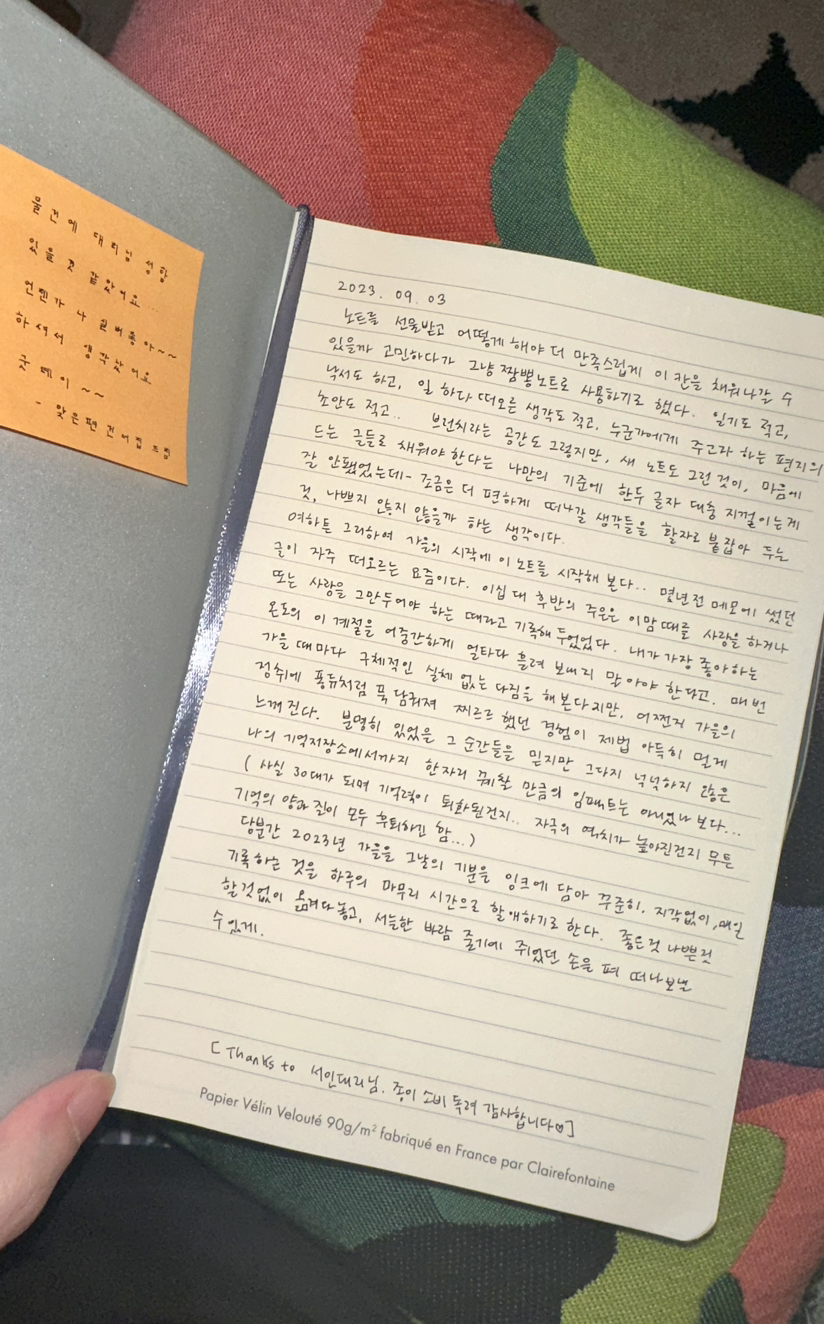 물건에 대리님 성함
있을 것 같았어요....
언젠가 나 실버좋아~~
하셔서 생각났어요
굿 데이~~
- 맞은편 건비업 드림
2023. 09. 03
노트를 선물받고 어떻게 해야 더 만족스럽게 이 칸을 채워나갈 수
있을까 고민하다가 그냥 짬뽕노트로 사용하기로 했다. 일기도 적고,
낙서도 하고, 일 하다 떠오른 생각도 적고, 누군가에게 주고자 하는 편지의
초안도 적고.. 브런치라는 공간도 그렇지만, 새 노트도 그런 것이, 마음에
드는 글들로 채워야 한다는 나만의 기준에 한두 글자 대충 지껄이는게
잘 안됐었는데- 조금은 더 편하게 떠나갈 생각들을 활자로 붙잡아 두는
것, 나쁘지 않지 않을까 하는 생각이다.
여하튼 그리하여 가을의 시작에 이 노트를 시작해 본다.. 몇년전 메모에 썼던
글이 자주 떠오르는 요즘이다. 이십 대 후반의 주은은 이맘때를 사랑을 하거나
또는 사랑을 그만두어야 하는 때라고 기록해 두었었다. 내가 가장 좋아하는
온도의 이 계절을 어중간하게 얼타다 흘려 보내지 말아야 한다고. 매번
가을 때마다 구체적인 실체 없는 다짐을 해본다지만, 어쩐지 가을의
정취에 퐁듀처럼 푹 담궈져 찌르르 했던 경험이 제법 아득히 멀게
느껴진다. 분명히 있었을 그 순간들을 믿지만 그다지 넉넉하지 않은
나의 기억저장소에서까지 한자리 꿰찰 만큼의 임팩트는 아니었나 보다...
( 사실 30대가 되며 기억력이 퇴화된건지.. 자극의 역치가 높아진건지 무튼
기억의 양과 질이 모두 후퇴하긴 함...)
당분간 2023년 가을을 그날의 기분을 잉크에 담아 꾸준히, 지각없이, 매일
기록하는 것을 하루의 마무리 시간으로 할애하기로 한다. 좋은것 나쁜것
할것없이 옮겨다 놓고, 서늘한 바람 줄기에 쥐었던 손을 펴 떠나보낼
수 있게.
[ Thanks to 서인대리님. 종이 소비 독려 감사합니다♡]
Papier Vélin Velouté 90g/m² fabriqué en France par Clairefontaine